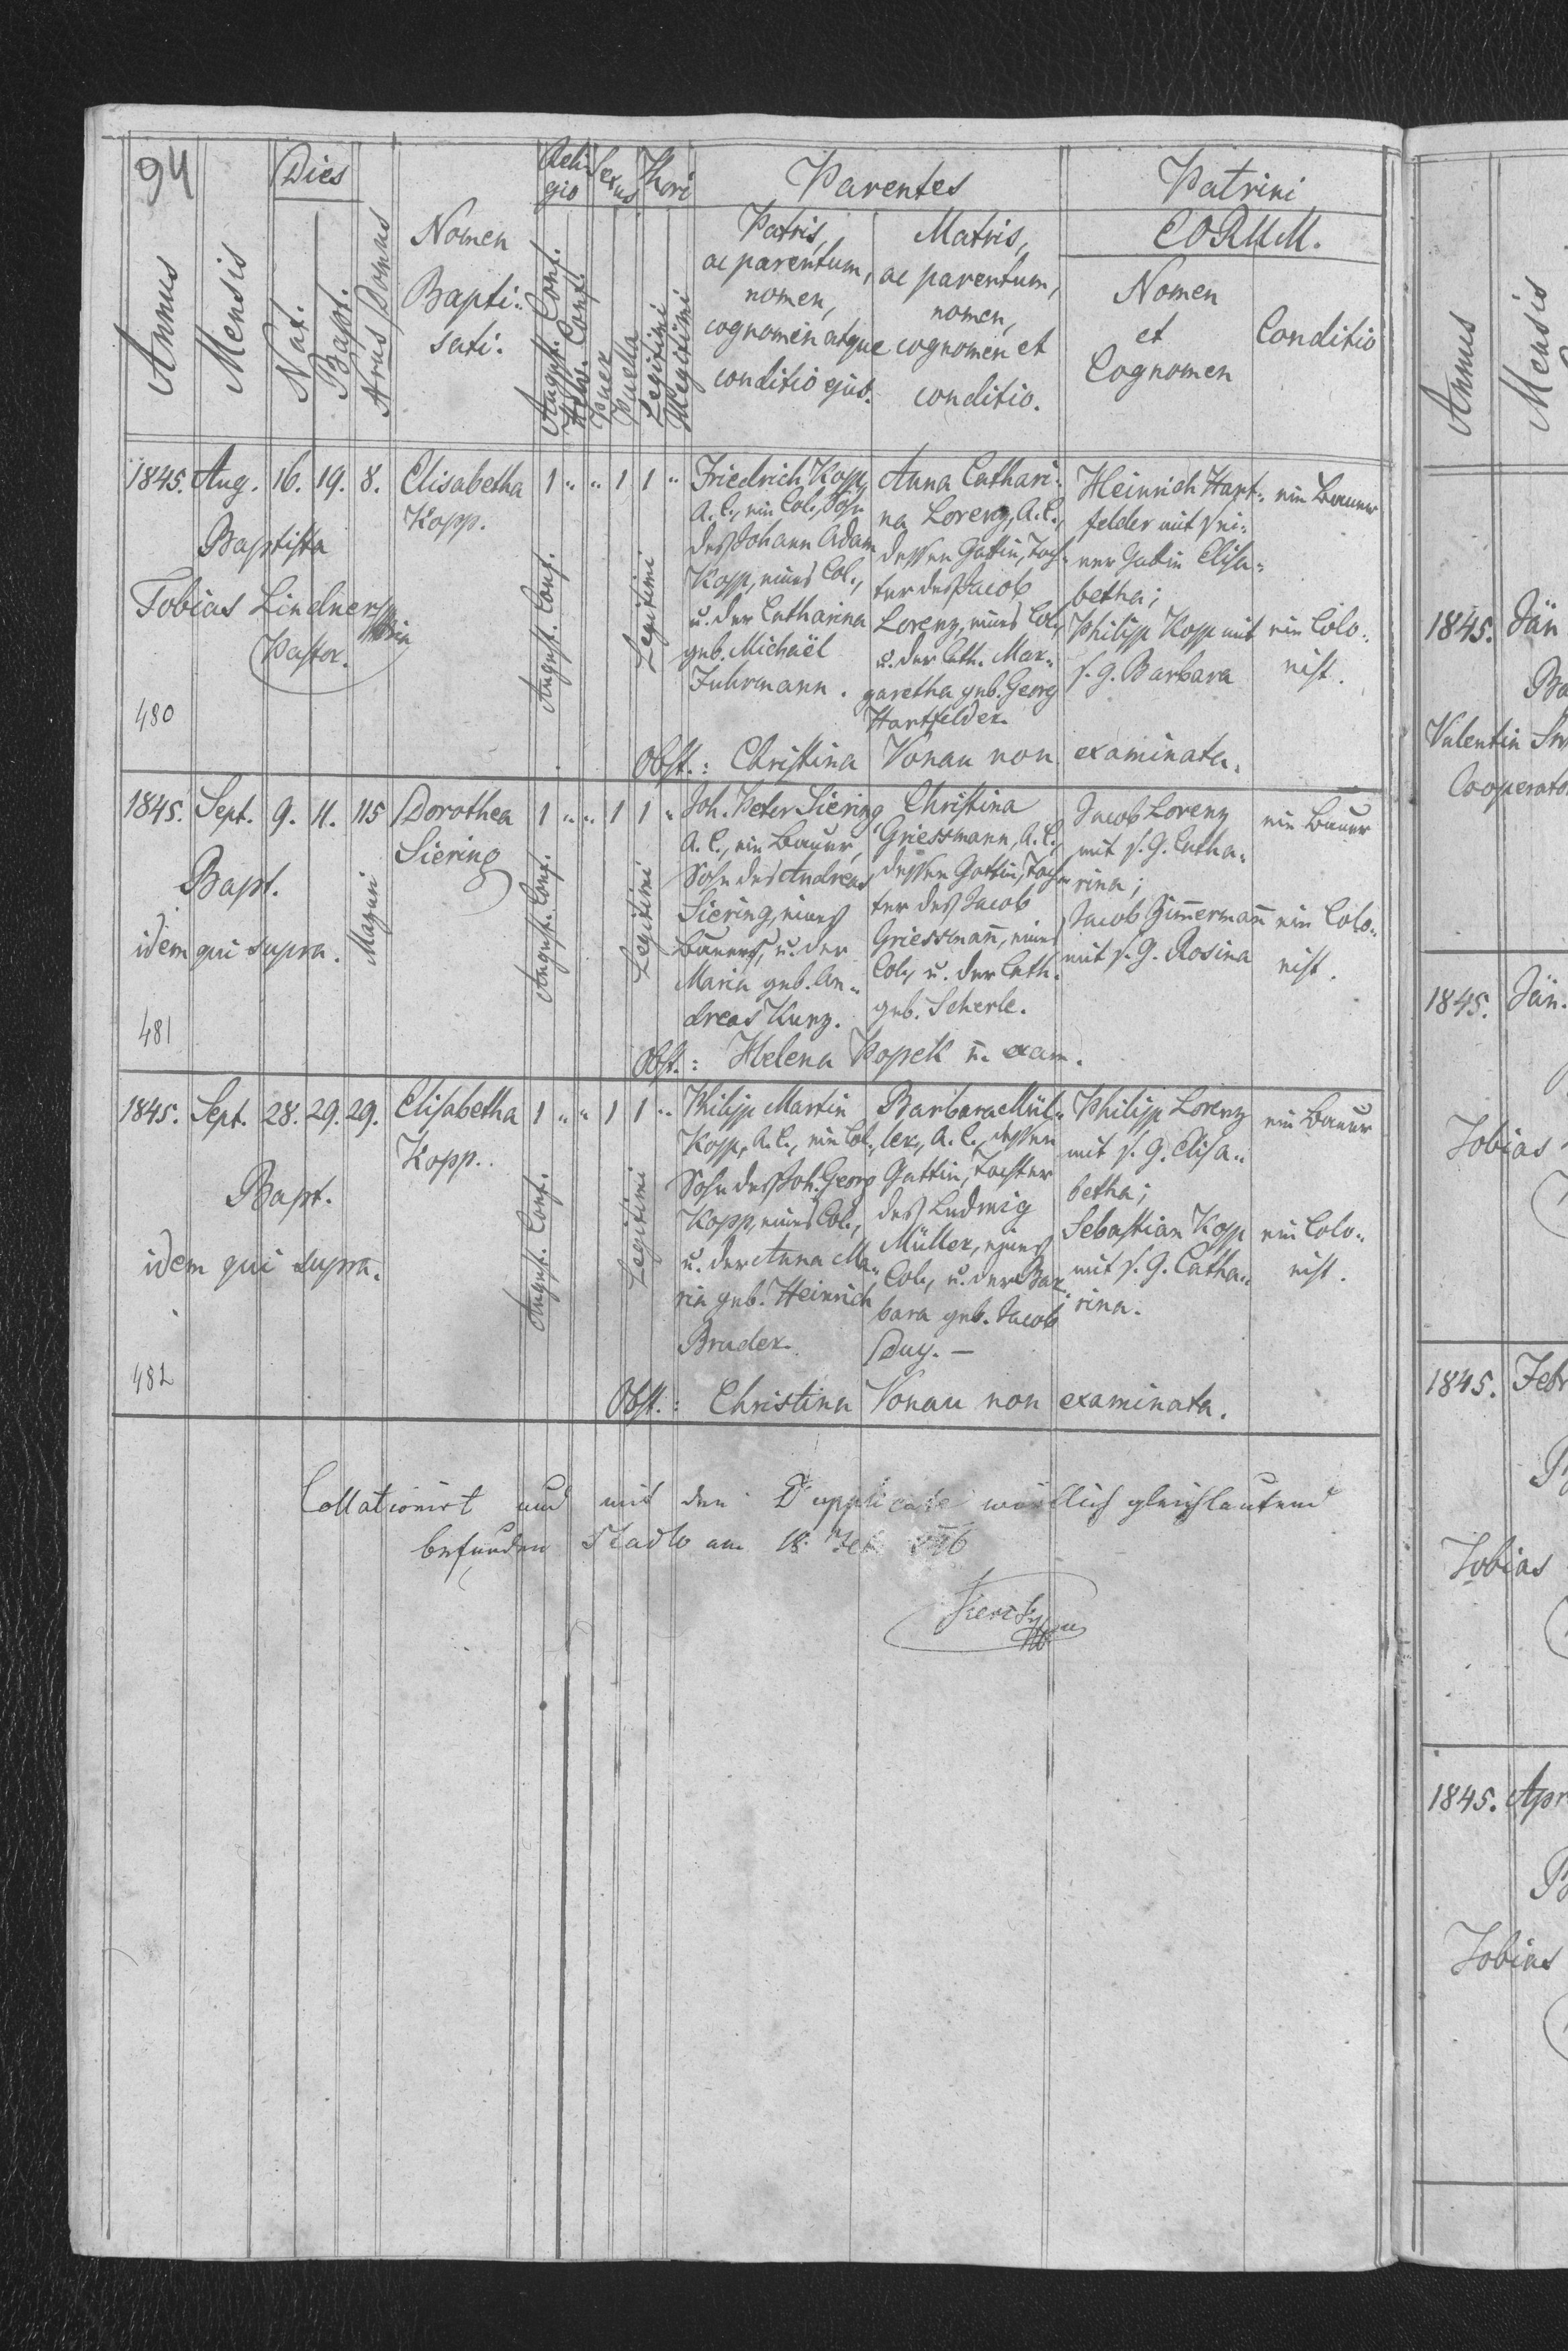 94
Dies
Reli-
gio
Sexus
Thori
Parentes
Patrini
Annus
Mensis
Nat.
Bapt.
Nrus Domus
Nomen
Bapti-
sati.
August. Conf.
Helv. Conf.
Puer
Puella
Legitimi
Illegitimi
Patris,
ac parentum,
nomen,
cognomen atque
conditio ejus.
Matris,
ac parentum,
nomen,
cognomen et
conditio.
EORUM.
Nomen
et
Cognomen
Conditio
1845. Aug. 16. 19. 8. Elisabetha 1 " " 1 1 "
Kopp.
Baptista
Tobias Lindner
Pastor.
480
August. Conf.
Legitimi
Friedrich Kopp,
A. C., ein Col., Sohn
des Johann Adam
Kopp, eines Col.,
u. der Catharina
geb. Michaël
Fuhrmann.
Anna Cathari-
na Lorenz, A. C.,
dessen Gattin, Toch-
ter des Jacob
Lorenz, eines Col.,
u. der Cath. Mar-
garetha geb. Georg
Hartfelder.
Heinrich Hart-
felder mit sei-
ner Gattin Elisa-
betha;
Philipp Kopp mit
s. G. Barbara
ein Bauer
ein Colo-
nist.
Obst.: Christina Vonau non examinata.
1845. Sept. 9. 11. 115 Dorothea 1 " " 1 1 "
Siering
Bapt.
idem qui supra.
481
August. Conf.
Legitimi
Joh. Peter Siering
A. C., ein Bauer,
Sohn des Andreas
Siering, eines
Bauers, u. der
Maria geb. An-
dreas Kunz.
Christina
Griessmann, A. C.,
dessen Gattin, Toch-
ter des Jacob
Griessmann, eines
Col., u. der Cath.
geb. Scherle.
Jacob Lorenz
mit s. G. Catha-
rina;
Jacob Zimmermann
mit s. G. Rosina
ein Bauer
ein Colo-
nist.
Obst.: Helena Popek n. exam.
1845. Sept. 28. 29. 29. Elisabetha 1 " " 1 1 "
Kopp.
Bapt.
idem qui supra.
482
August. Conf.
Legitimi
Philipp Martin
Kopp, A. C., ein Col.,
Sohn des Joh. Georg
Kopp, eines Col.,
u. der Anna Ma-
ria geb. Heinrich
Bruder.
Barbara Mül-
ler, A. C., dessen
Gattin, Tochter
des Ludwig
Müller, eines
Col., u. der Bar-
bara geb. Jacob
Duy. —
Philipp Lorenz
mit s. G. Elisa-
betha;
Sebastian Kopp
mit s. G. Catha-
rina.
ein Bauer
ein Colo-
nist.
Obst.: Christina Vonau non examinata.
Collationirt und mit dem Dupplicate wörtlich gleichlautend
befunden Stadlo am 18. Feb 846
Annus
Mensis
1845. Jän
Ba
Valentin
Cooperato
1845. Jän.
Tobias
1845. Febr
Tobias
1845. Apr
Tobias